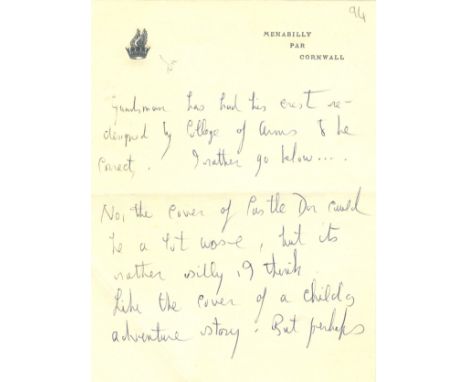 94
MENABILLY
PAR
CORNWALL
Guardsman has had his crest re-
designed by College of Arms to be
correct. I rather go below....
No, the cover of Castle Dor could
be a lot worse, but its
rather silly, I think.
Like the cover of a childs
adventure story. But perhaps